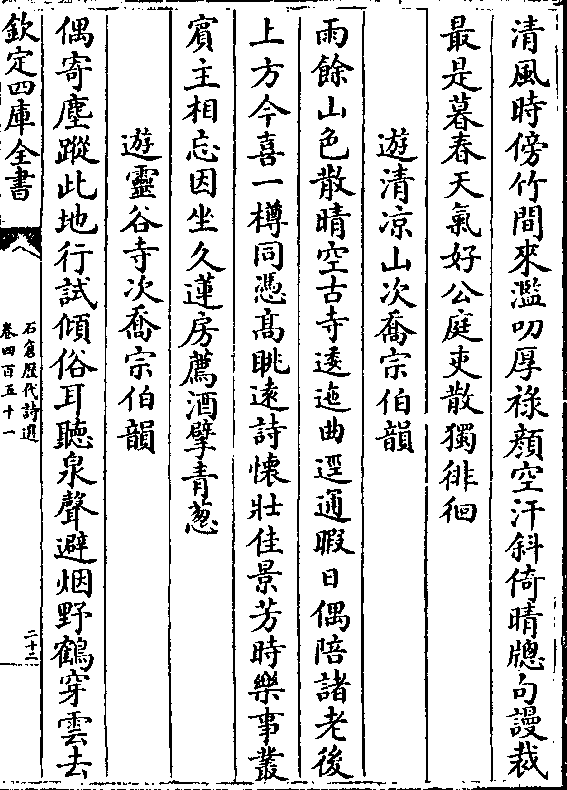 清風時傍竹間來濫叨厚祿顔空汗斜倚晴牕句謾裁
最是暮春天氣好公庭吏散獨徘徊
遊清凉山次喬宗伯韻
雨餘山色散晴空古寺逶迤曲逕通暇日偶陪諸老後
上方今喜一樽同憑髙眺遠詩懷壯佳景芳時樂事叢
賓主相忘因坐久蓮房薦酒擘青葱
遊靈谷寺次喬宗伯韻
偶寄塵蹤此地行試傾俗耳聽泉聲避烟野鶴穿雲去
欽定四庫全書
石倉歴代詩選
卷四百五十一
二十三